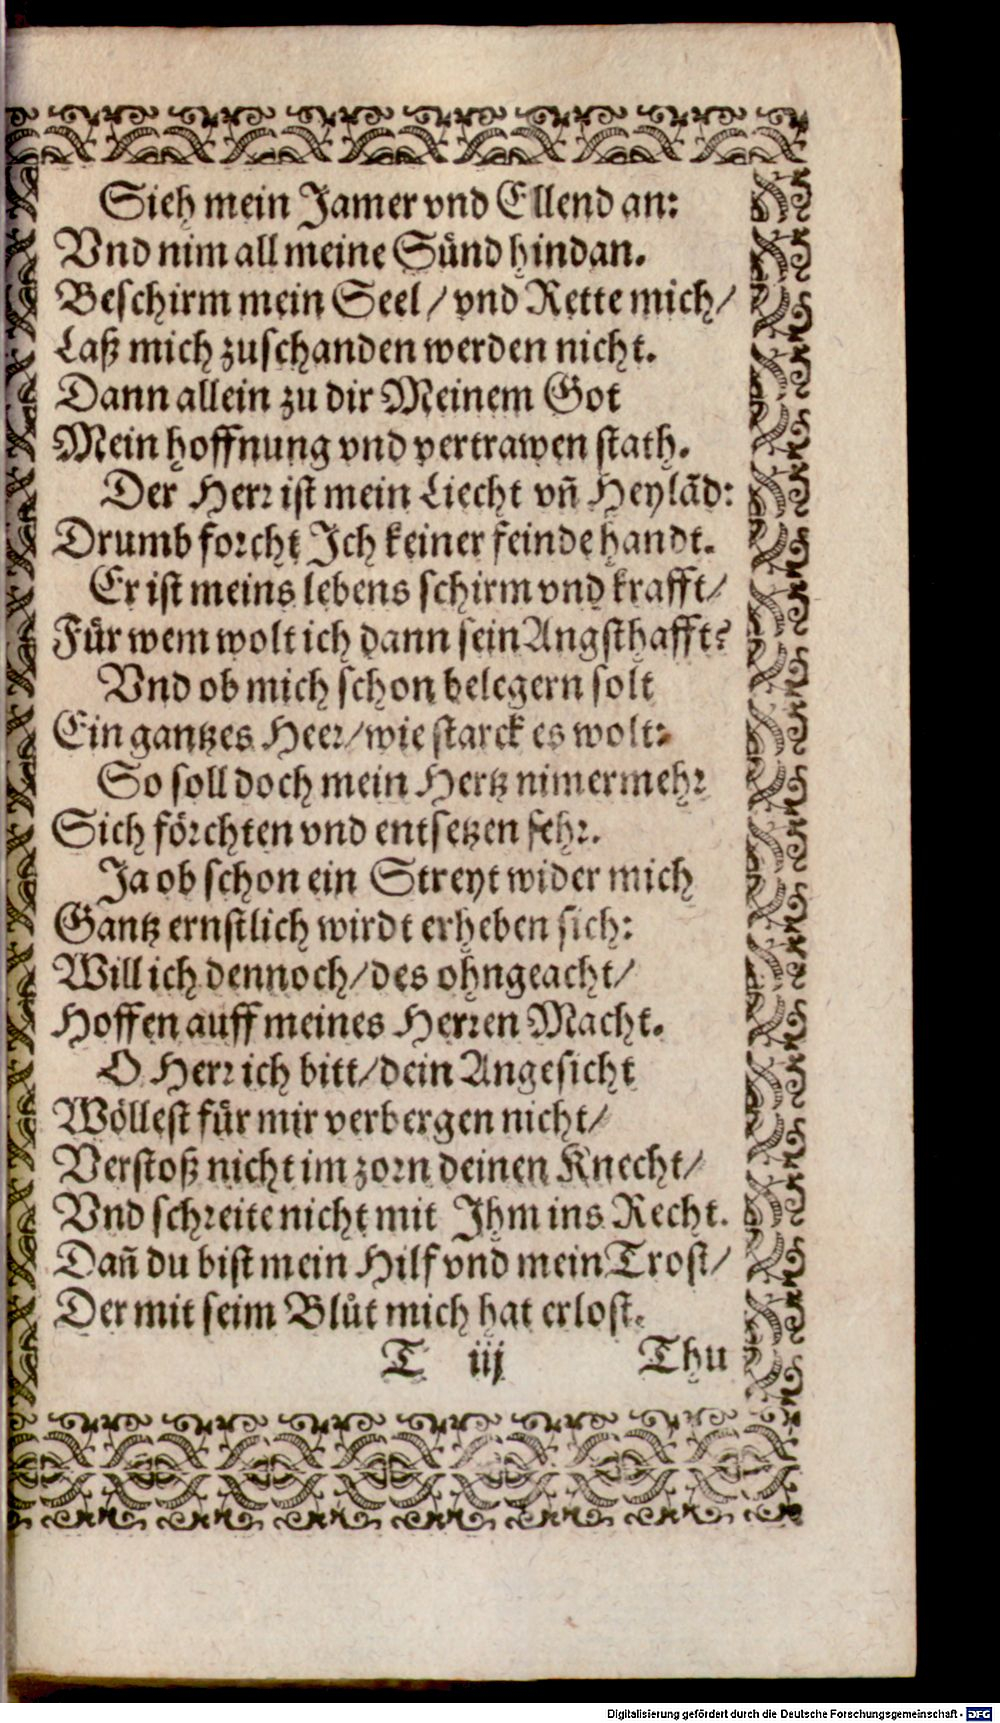 Sieh mein Jamer vnd Ellend an:
Vnd nim all meine Sünd hindan.
Beschirm mein Seel / vnd Rette mich /
Laß mich zuschanden werden nicht.
Dann allein zu dir Meinem Got
Mein hoffnung vnd vertrawen stath.
Der Herr ist mein Liecht vñ Heylãd:
Drumb forcht Ich keiner feinde handt.
Er ist meins lebens schirm vnd krafft /
Für wem wolt ich dann sein Angsthafft?
Vnd ob mich schon belegern solt
Ein gantzes Heer / wie starck es wolt:
So soll doch mein Hertz nimermehr
Sich förchten vnd entsetzen sehr.
Ja ob schon ein Streyt wider mich
Gantz ernstlich wirdt erheben sich:
Will ich dennoch / des ohngeacht /
Hoffen auff meines Herren Macht.
O Herr ich bitt / dein Angesicht
Wöllest für mir verbergen nicht /
Verstoß nicht im zorn deinen Knecht /
Vnd schreite nicht mit Ihm ins Recht.
Dañ du bist mein Hilf vnd mein Trost /
Der mit seim Blůt mich hat erlost.
T iij Thu
Digitalisierung gefördert durch die Deutsche Forschungsgemeinschaft - DFG